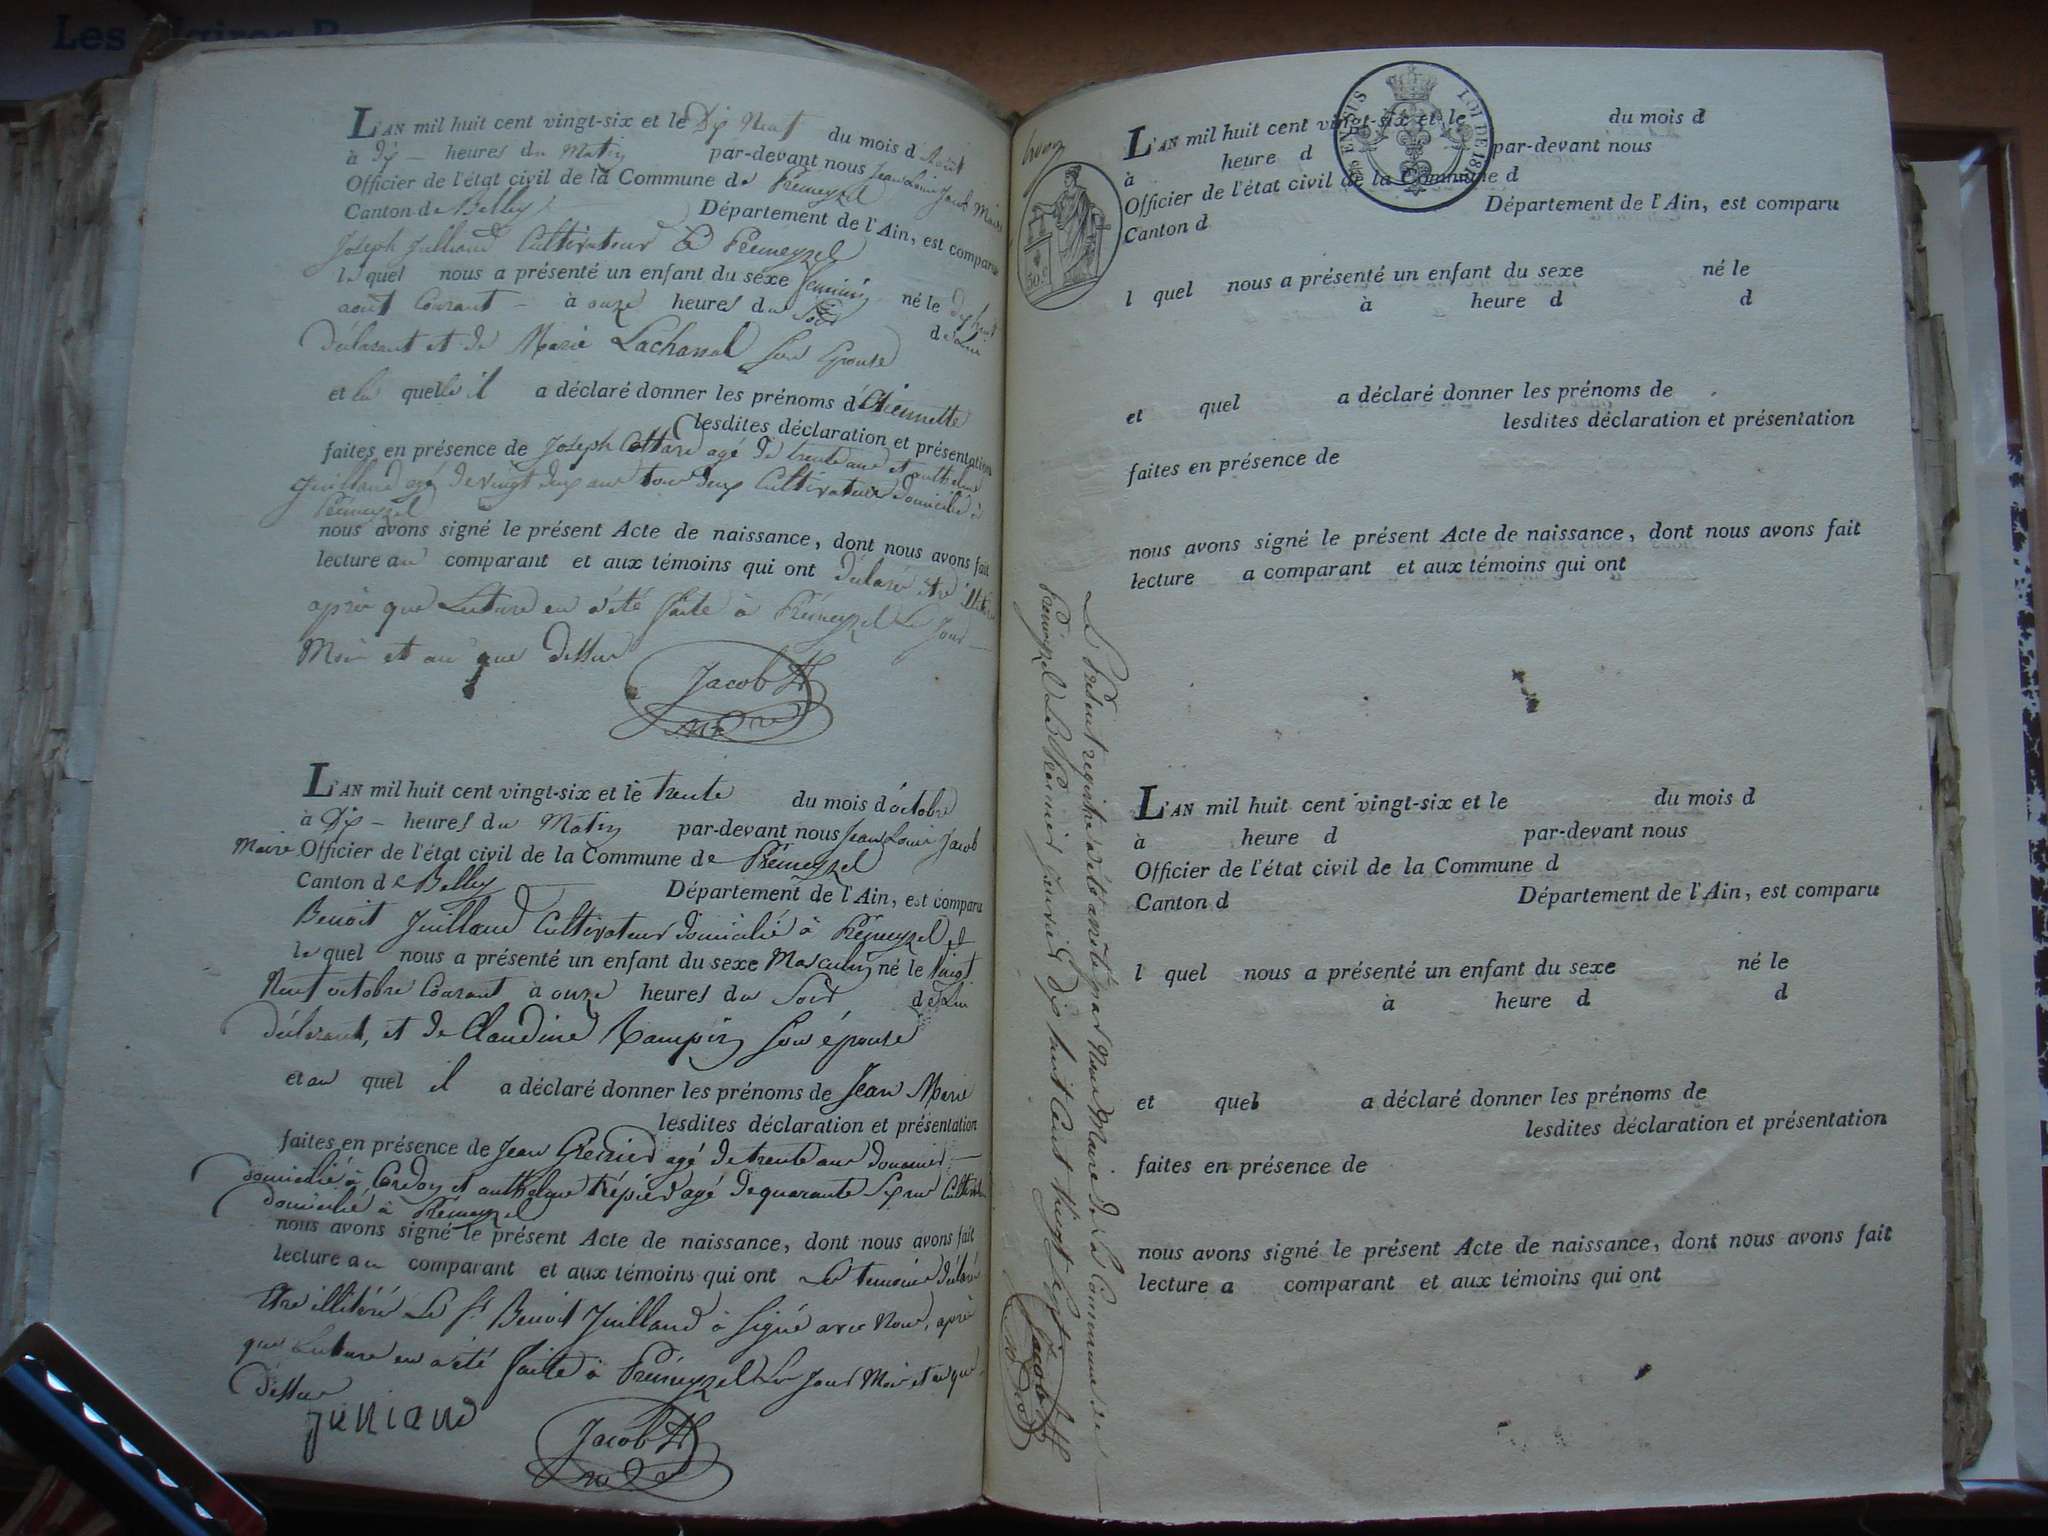 L'AN mil huit cent vingt-six et le Dix Neuf du mois d'Août
à Dix heures du Matin par-devant nous Jean Louis Jacob Maire
Officier de l'état civil de la Commune de Prémeyzel
Canton de Belley Département de l'Ain, est comparu
Joseph Juilland Cultivateur à Prémeyzel
le quel nous a présenté un enfant du sexe feminin né le dix huit
août Courant à onze heures du Soir de Lui
déclarant et de Marie Lachanal Son Epouse
et la quelle il a déclaré donner les prénoms d'Etiennette
lesdites déclaration et présentation
faites en présence de Joseph Cottard agé de trente ans et anthelme
Juilland agé de vingt deux ans tous deux Cultivateurs domicilié à
Prémeyzel
nous avons signé le présent Acte de naissance, dont nous avons fait
lecture au comparant et aux témoins qui ont déclaré être
après que Lecture en a été faite à Prémeyzel Le Jour
Mois et an que dessus
Jacob
L'AN mil huit cent vingt-six et le trente du mois d'octobre
à Dix heures du Matin par-devant nous Jean Louis Jacob
Maire Officier de l'état civil de la Commune de Prémeyzel
Canton de Belley Département de l'Ain, est comparu
Benoit Juilland Cultivateur domicilié à Prémeyzel
le quel nous a présenté un enfant du sexe Masculin né le Vingt
Neuf octobre Courant à onze heures du Soir de Lui
déclarant, et de Claudine Rampin Son épouse
et au quel il a déclaré donner les prénoms de Jean Marie
lesdites déclaration et présentation
faites en présence de Jean agé de trente ans douanier
domicilié à Cordon et anthelme trépier agé de quarante Six ans
domicilié à Prémeyzel
nous avons signé le présent Acte de naissance, dont nous avons fait
lecture au comparant et aux témoins qui ont Les temoins déclaré
être illitéré Le Sr Benoit Juilland à Signé avec Nous, après
que Lecture en a été faite à Prémeyzel Les Jour Mois et an que
dessus
Juniand
Jacob
LOI DE 18
50 c.
L'AN mil huit cent vingt-six et le du mois d
à heure d par-devant nous
Officier de l'état civil de la Commune d
Canton d Département de l'Ain, est comparu
l quel nous a présenté un enfant du sexe né le
à heure d d
et quel a déclaré donner les prénoms de
lesdites déclaration et présentation
faites en présence de
nous avons signé le présent Acte de naissance, dont nous avons fait
lecture a comparant et aux témoins qui ont
Le Présent registre à été arrêté par Nous Maire de La Commune de
Prémeyzel Le Premier Janvier Dix huit Cent Vingt Sept
Jacob
L'AN mil huit cent vingt-six et le du mois d
à heure d par-devant nous
Officier de l'état civil de la Commune d
Canton d Département de l'Ain, est comparu
l quel nous a présenté un enfant du sexe né le
à heure d d
et quel a déclaré donner les prénoms de
lesdites déclaration et présentation
faites en présence de
nous avons signé le présent Acte de naissance, dont nous avons fait
lecture a comparant et aux témoins qui ont